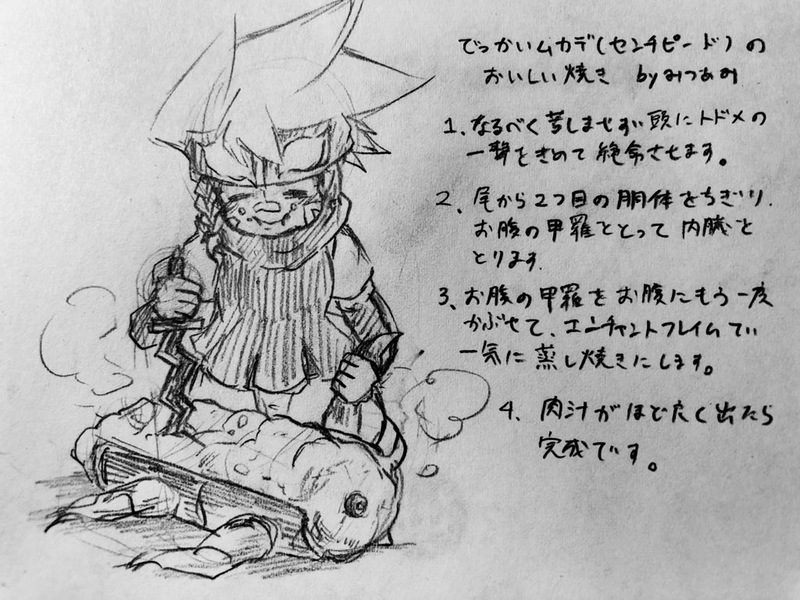 でっかいムカデ(センチピード)の
おいしい焼き byみつあみ
1、なるべく苦しませず頭にトドメの
一撃をきめて絶命させます。
2、尾から2つ目の胴体をちぎり、
お腹の甲羅をとって内臓を
とります。
3、お腹の甲羅をお腹にもう一度
かぶせて、エンチャントフレイムで
一気に蒸し焼きにします。
4、肉汁がほどよく出たら
完成です。